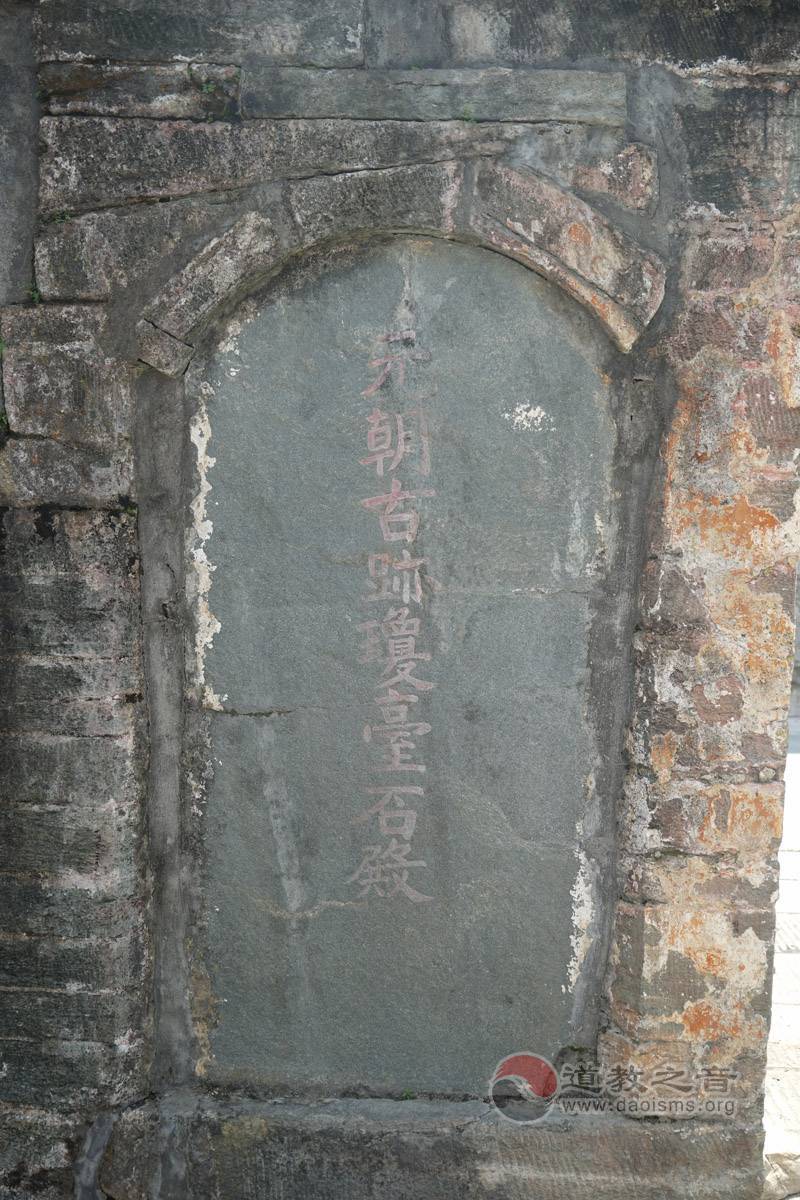 元朝古跡瓊臺石殿
道教之音
www.daoisms.org